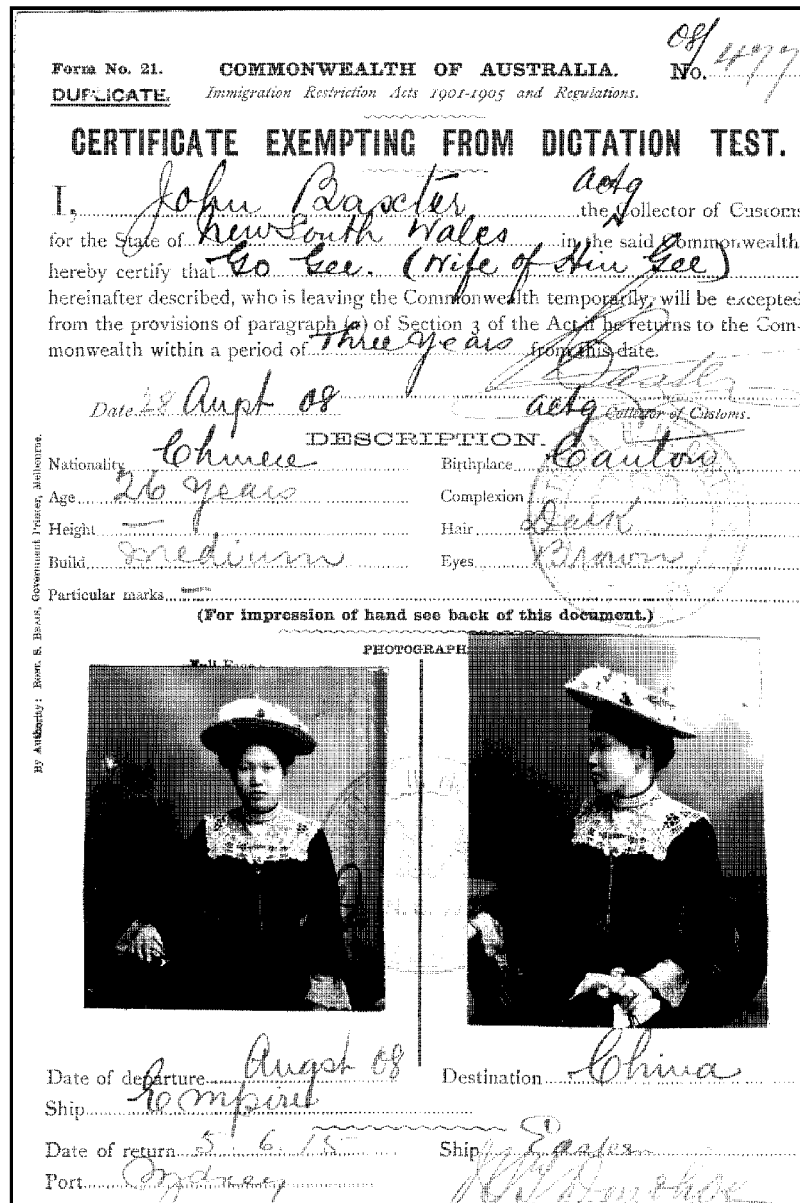 08/
Form No. 21. COMMONWEALTH OF AUSTRALIA. No. 477
DUPLICATE. Immigration Restriction Acts 1901-1905 and Regulations.
CERTIFICATE EXEMPTING FROM DICTATION TEST.
I, John Baxter the actg Collector of Customs
for the State of New South Wales in the said Commonwealth
hereby certify that Go Gee. (Wife of Hin Gee)
hereinafter described, who is leaving the Commonwealth temporarily, will be excepted
from the provisions of paragraph (a) of Section 3 of the Act if he returns to the Com-
monwealth within a period of Three Years from this date.
Date 28 Augst 08 actg Collector of Customs.
DESCRIPTION.
Nationality Chinese Birthplace Canton
Age 26 Years Complexion
Height — Hair Dark
Build Medium Eyes Brown
Particular marks
(For impression of hand see back of this document.)
PHOTOGRAPH
By Authority: ROBT. S. BRAIN, Government Printer, Melbourne.
Date of departure Augst 08 Destination China
Ship Empire
Date of return 5. 6. 15 Ship Eastern
Port Sydney